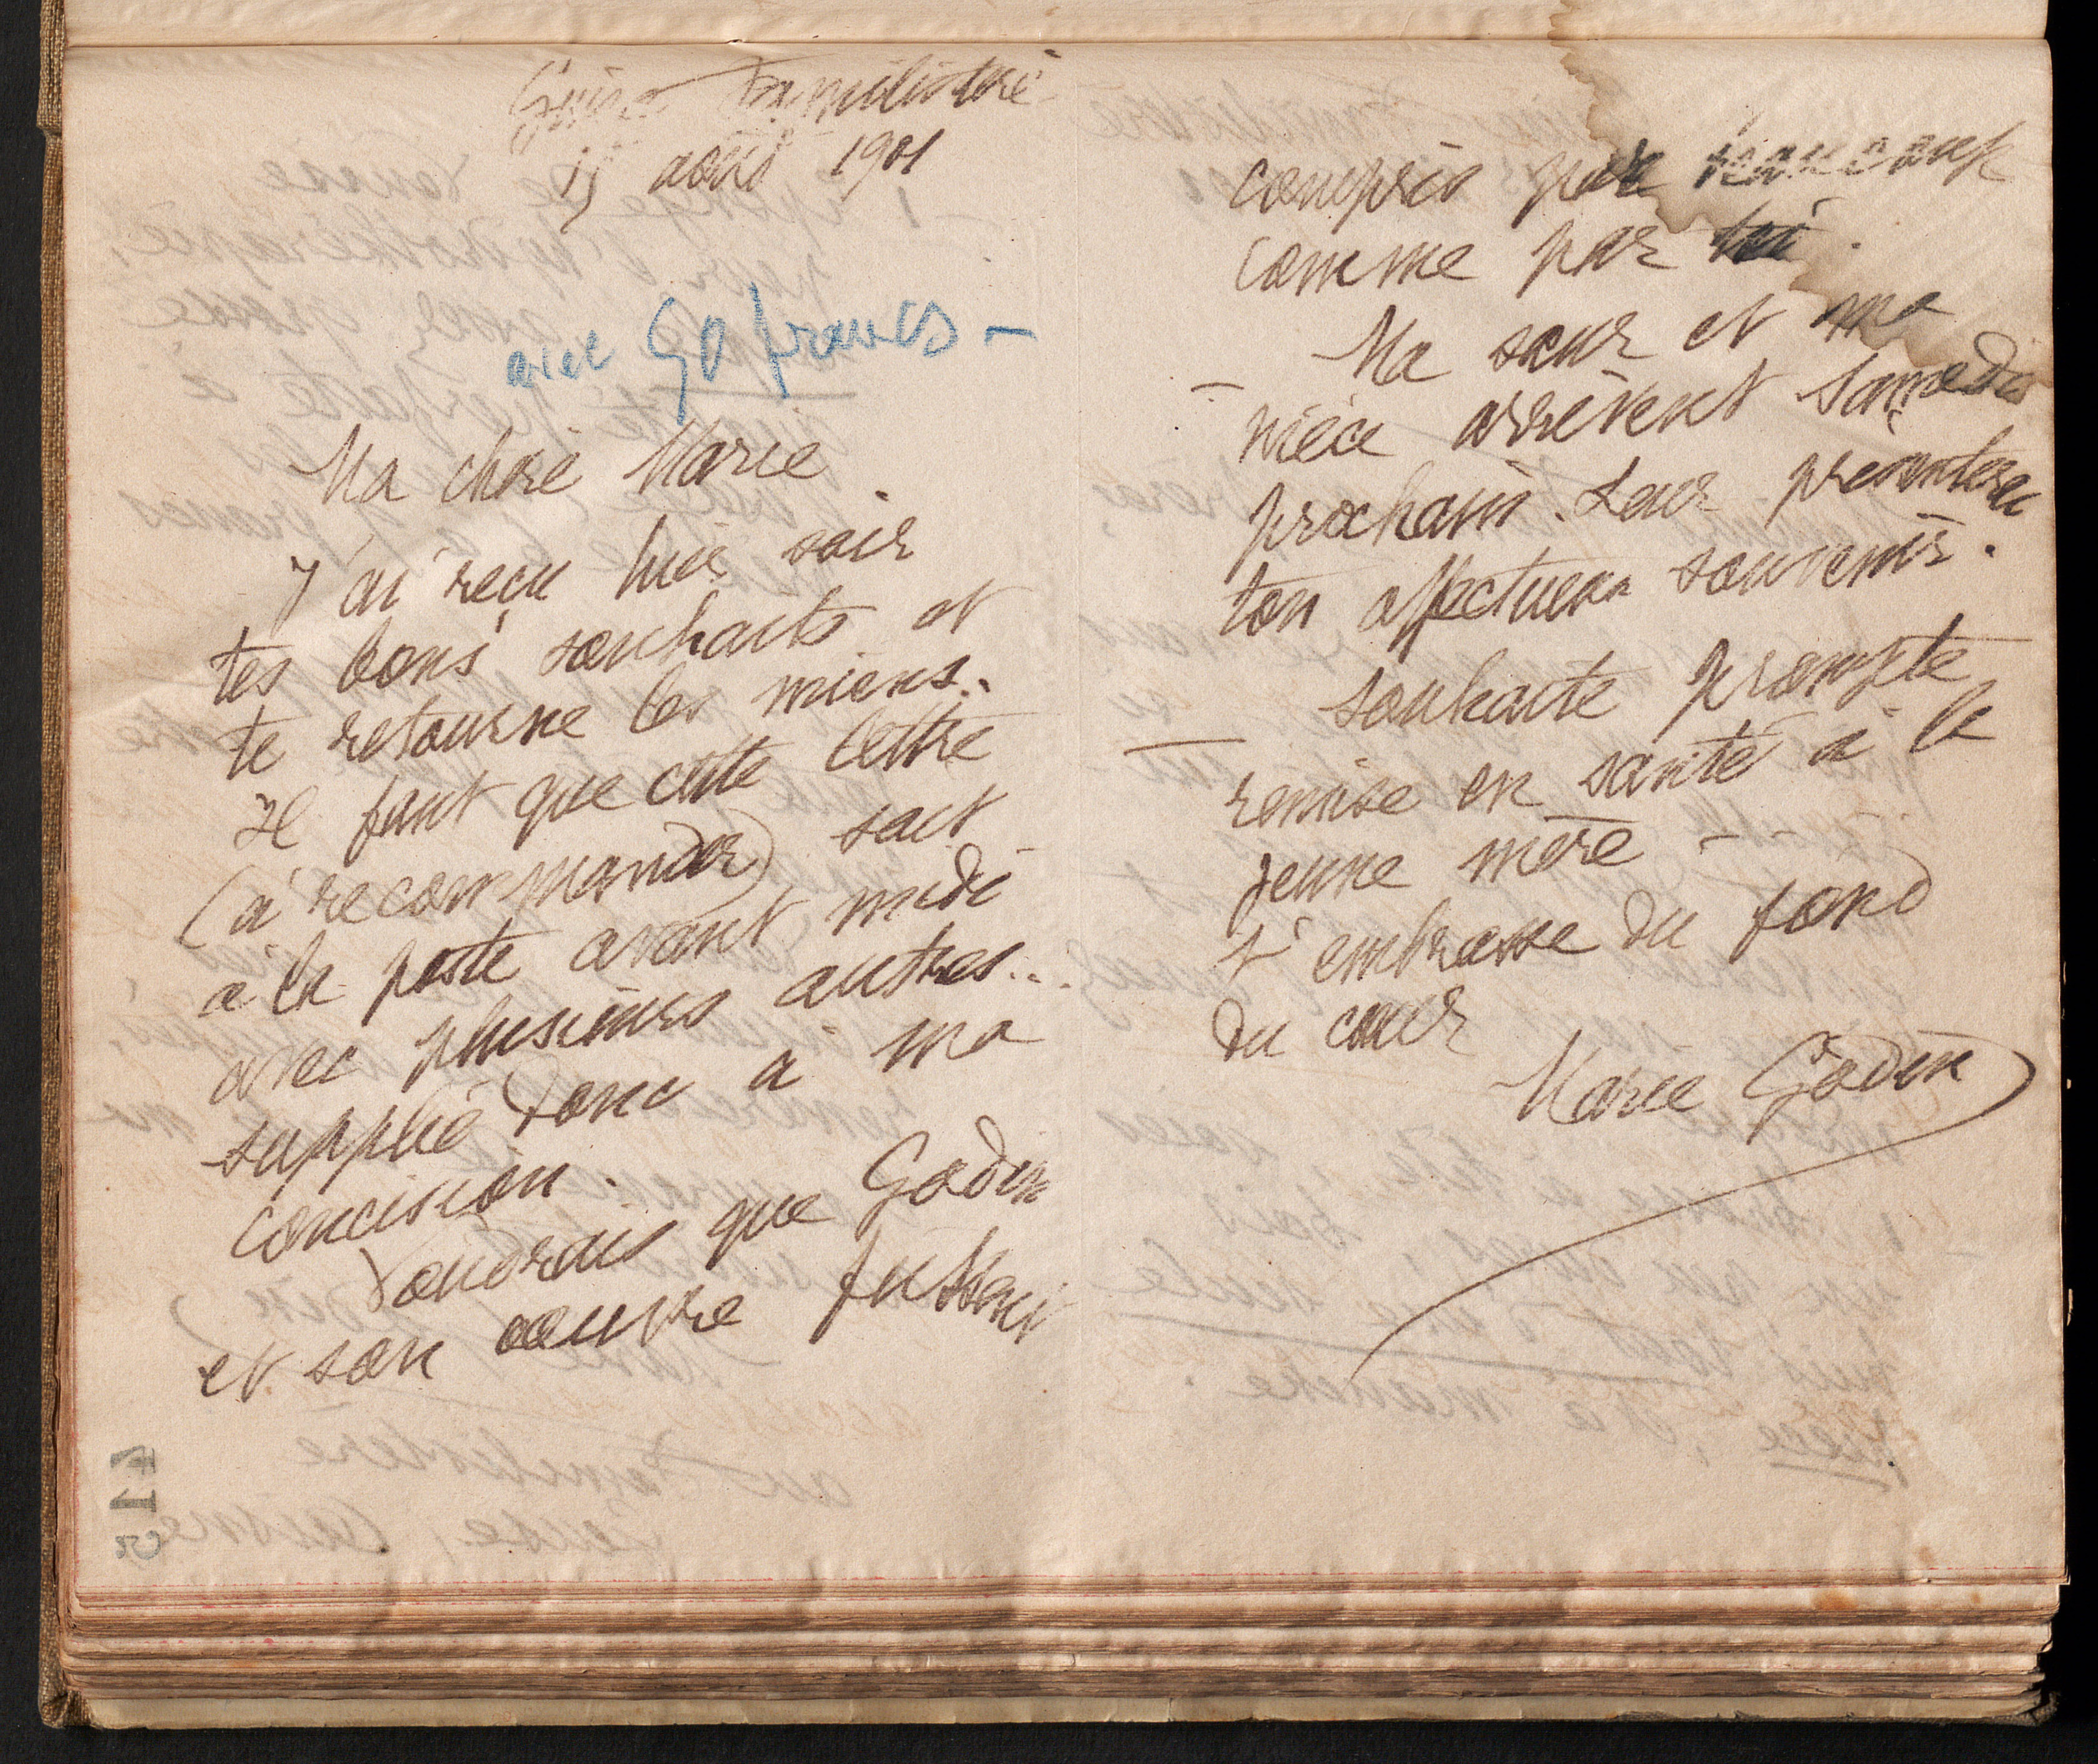 Guise Familistère
15 août 1901
avec 50 francs -
Ma chère Marie
J'ai reçu hier soir
tes bons souhaits et
te retourne les miens.
Il faut que cette lettre
(à recommander) soit
à la poste avant midi
avec plusieurs autres...
supplée donc à ma
concision.
Voudrais que Godin
et son œuvre fussent
compris par beaucoup
comme par toi.
Ma sœur et ma
nièce arrivent samedi
prochain. Leur présenterai
ton affectueux souvenir.
Souhaite prompte
remise en santé à la
jeune mère -
t'embrasse du fond
du cœur
Marie Godin